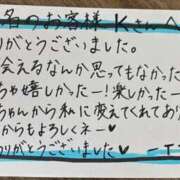 名のお客様 Kさんへ
りがとうございました。
会えるなんか思ってもなか
ちゃ嬉しかったー!楽しかったー
ちゃんから私に変えてくれてあり
からもよろしくネー♥
りがとうございました♥ ーT